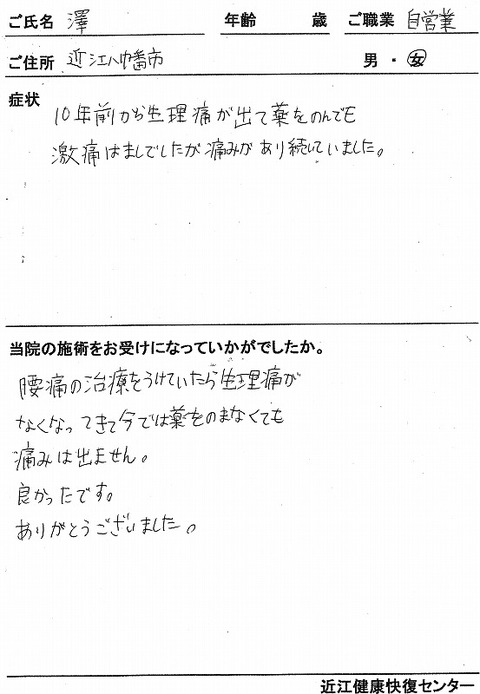 ご氏名 澤 年齢 歳 ご職業 自営業
ご住所 近江八幡市 男・女
症状
10年前から生理痛が出て薬をのんでも
激痛はましでしたが痛みがあり続いていました。
当院の施術をお受けになっていかがでしたか。
腰痛の治療をうけていたら生理痛が
なくなってきて今では薬をのまなくても
痛みは出ません。
良かったです。
ありがとうございました。
近江健康快復センター